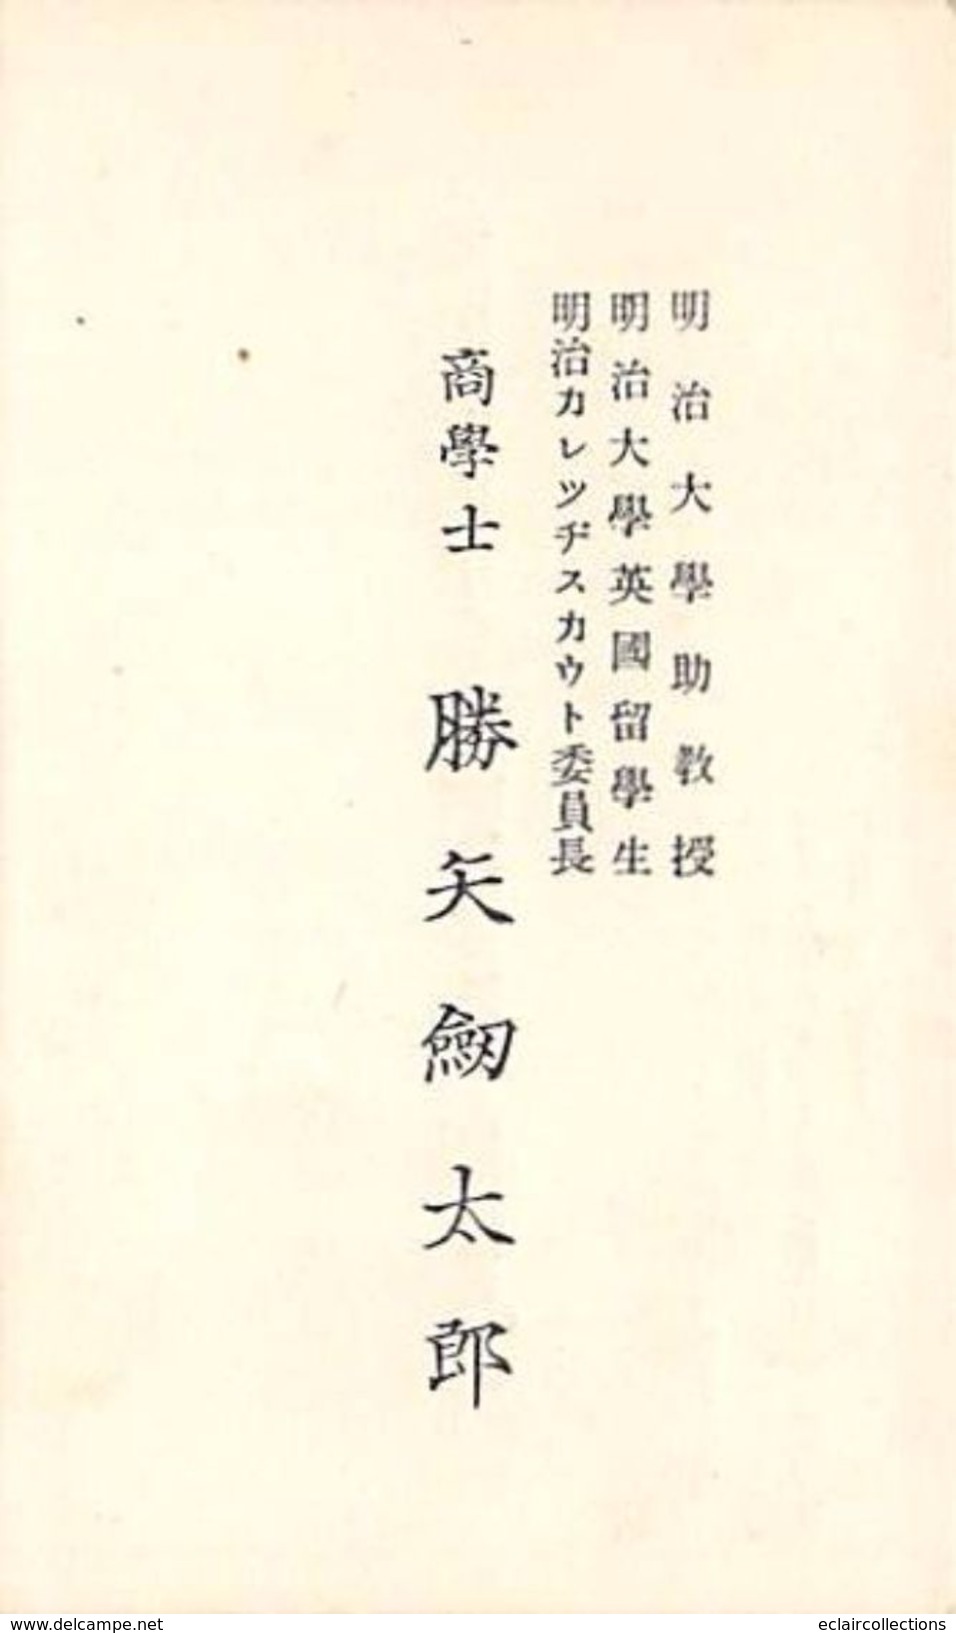 明治大學助教授
明治大學英國留學生
明治カレッヂスカウト委員長
商學士 勝矢劔太郎
delcampe.net
eclaircollections